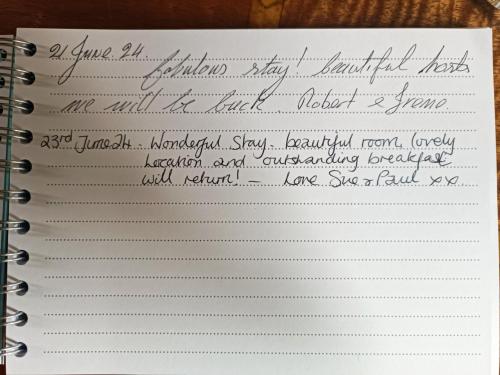 21 June 24
fabulous stay! beautiful hosts
we will be back Robert & Irene.
23rd June 24 - Wonderful Stay - beautiful room, lovely
Location and outstanding breakfast
will return! - Love Sue & Paul xx